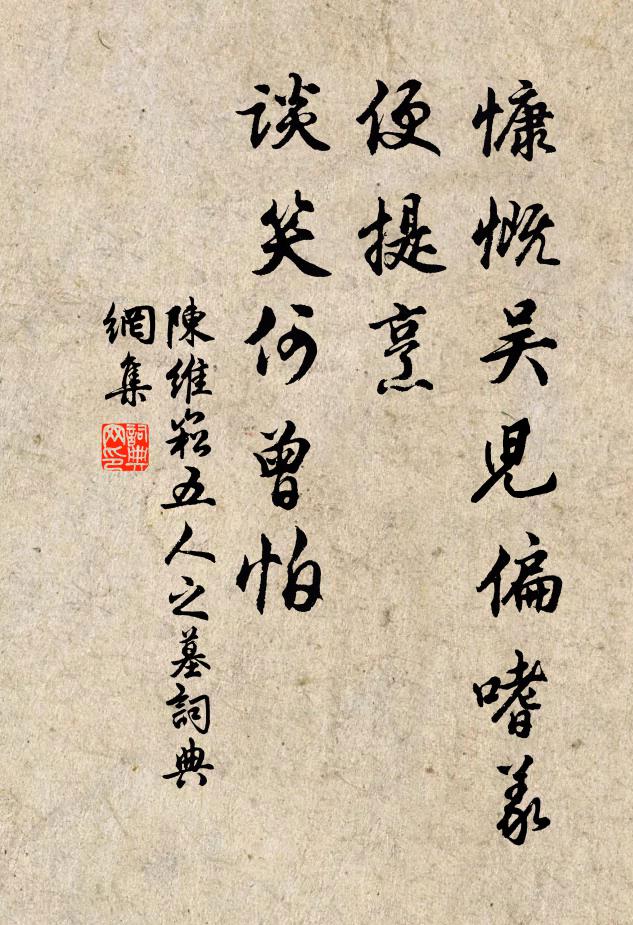 慷慨吴児偏嗜義
便提烹
談笑何曾怕
陳維崧五人之墓詞典
網集
詞典
网印